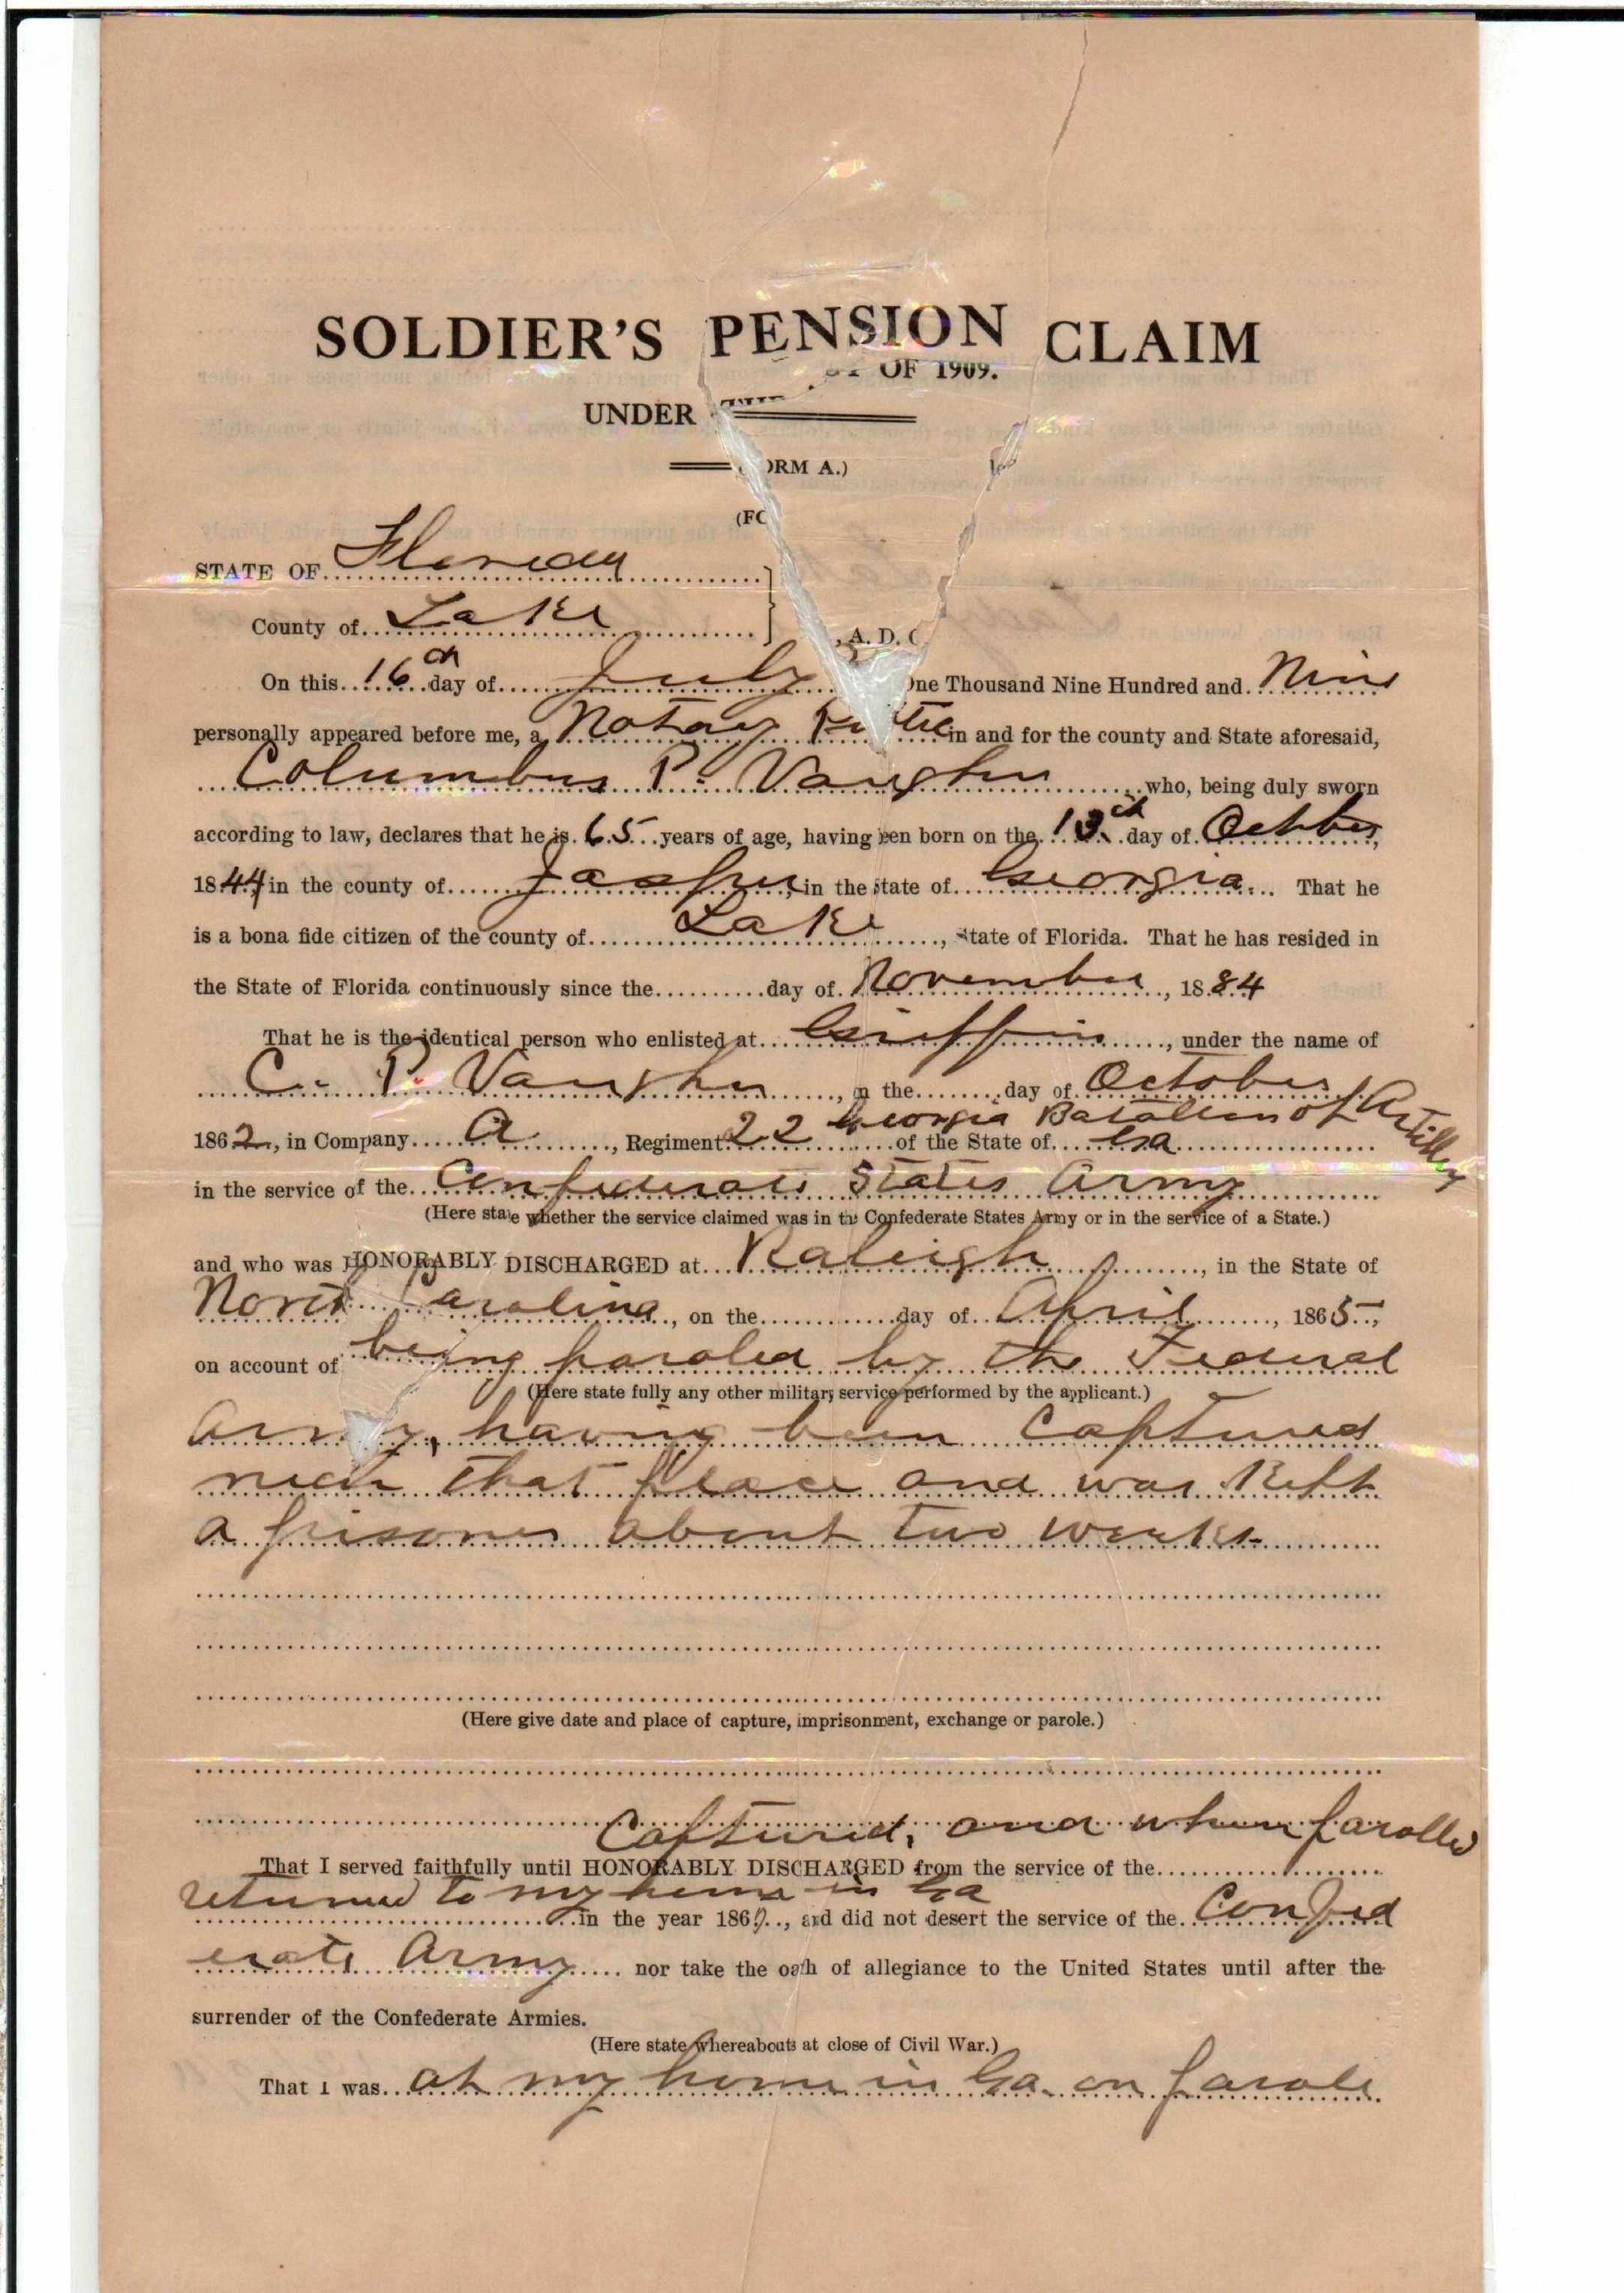 SOLDIER'S PENSION CLAIM
UNDER OF 1909.
(FORM A.)
STATE OF Florida
County of Lake
, A. D.
On this 16th day of July One Thousand Nine Hundred and Nine
personally appeared before me, a Notary Public in and for the county and State aforesaid,
Columbus P. Vaughn who, being duly sworn
according to law, declares that he is 65 years of age, having been born on the day of October,
1844, in the county of Jasper, in the State of Georgia. That he
is a bona fide citizen of the county of Lake, State of Florida. That he has resided in
the State of Florida continuously since the day of November, 1884
That he is the identical person who enlisted at Griffin, under the name of
C. P. Vaughn, on the day of October
1862, in Company A, Regiment 22 Georgia Batallion of Artillery of the State of Ga
in the service of the Confederate States Army
(Here state whether the service claimed was in the Confederate States Army or in the service of a State.)
and who was HONORABLY DISCHARGED at Raleigh, in the State of
North Carolina, on the day of April, 1865,
on account of being paroled by the Federal
(Here state fully any other military service performed by the applicant.)
Army, having been Captured
near that place and was Kept
a prisoner about two weeks
(Here give date and place of capture, imprisonment, exchange or parole.)
Captured, and when parolled
That I served faithfully until HONORABLY DISCHARGED from the service of the
returned to my home in Ga
in the year 186 , and did not desert the service of the Confed
erate Army nor take the oath of allegiance to the United States until after the
surrender of the Confederate Armies.
(Here state whereabouts at close of Civil War.)
That I was at my home in Ga. on parole